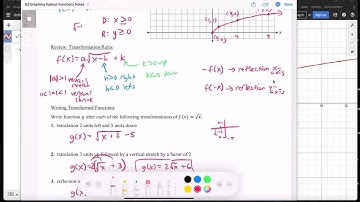 6.2 Graphing Radical Functions Notes
√-1
D: x ≥ 0
R: y ≥ 0
Review: Transformation Rules
f(x) = a√x-h + k
k>0 up
k<0 down
|a|>1 vertical stretch
h>0 right
0<|a|<1 vertical shrink
h<0 left
-f(x) → reflection x-axis
f(-x) → reflection y-axis
Writing Transformed Functions
Write function g after each of the following transformations of f(x) = √x.
1. translation 2 units left and 5 units down
g(x) = √x + 2 - 5
2. translation 3 units up followed by a vertical stretch by a factor of 2
g(x) = 2(√x + 3)
g(x) = 2√x + 6
3. reflection
g(x